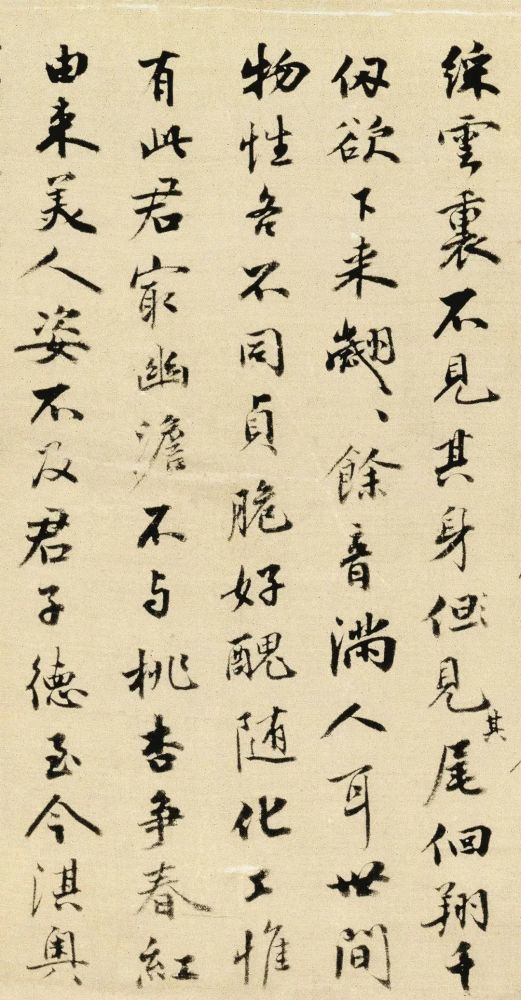 綵雲裏不見其身但見其尾佪翔千
仭欲下来翽〻餘音滿人耳世間
物性各不同貞脆好醜随化工惟
有此君寂幽澹不与桃杏争春紅
由来美人姿不及君子德至今淇奥